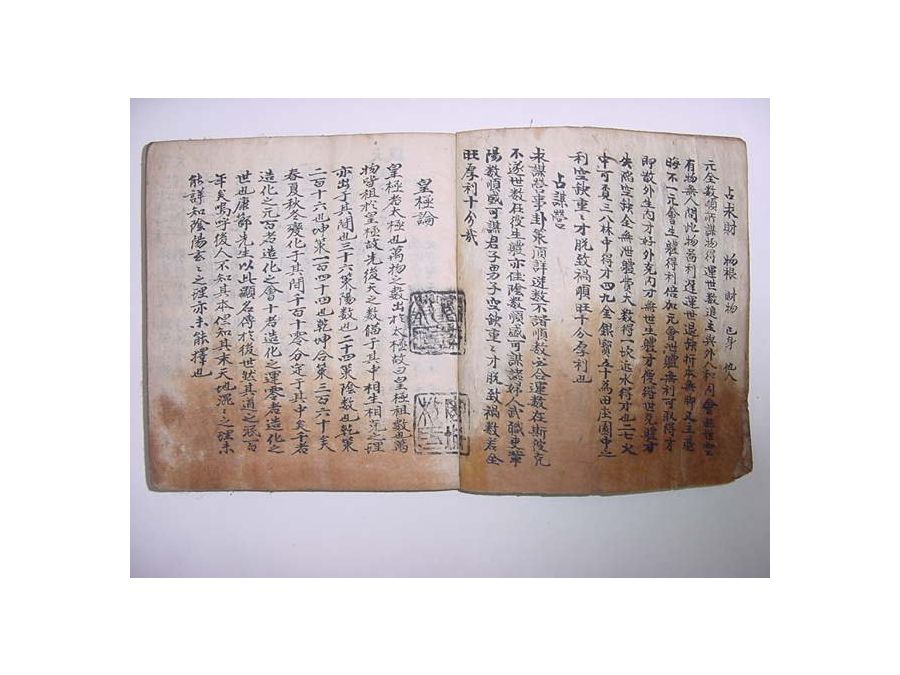 占求財 物根 財物 己身 他人
元全數順所謀物得運世數進主與外和同會
有物無人間此物 利遲運世退 折本無 足主
悔不一元會生軆得利倍加元會泄軆無利可取得才
即數外生內才好外克內才無世生軆才復得世克軆才
失陷空缺全無泄軆費大數得一坎近水得才也二七火
中可 三八林中得才四九金銀寶五十為田座園中之
利空缺重〻才脫致禍順旺十分厚利也
占謀營
求謀 事卦策順詳逆數不諧順數必合運數在 克
不遂世數在 生軆亦佳陰數順盛可謀 婦人武職吏輩
陽數順盛可謀君子男子空缺重〻才脫致禍數若全
旺厚利十分哉
皇極論
皇極者太極也萬物之數出於太極故曰皇極祖數也萬
物皆祖於皇極故先後天之數備于其中相生相克之理
亦出于其間也三十六策陽數也二十四策陰數也乾策
二百十六也坤策一百四十四也乾坤合策三百六十矣
春夏秋冬變化于其間千百十零分定于其中矣千者
造化之元百者造化之會十者造化之運零者造化之
世也康節先生以此顯名得於後世狀其道之泯百
年矣嗚呼後人不知其本但知其末天地混〻之理未
能詳知陰陽玄〻之理亦未能擇也